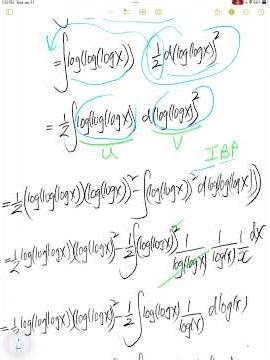 = ∫ log(log(logx)) ½ d(log(logx))²
= ½ ∫ log(log(logx)) d(log(logx))²
u v
IBP
= ½ (log(log(logx))(log(logx))² - ∫ (log(logx))² d log(log(logx)))
= ½ log(log(logx))(log(logx))² - ½ ∫ (log(logx))² 1/log(logx) 1/log(x) 1/x dx
= ½ log(log(logx))(log(logx))² - ½ ∫ log(logx) 1/log(x) d log(x)